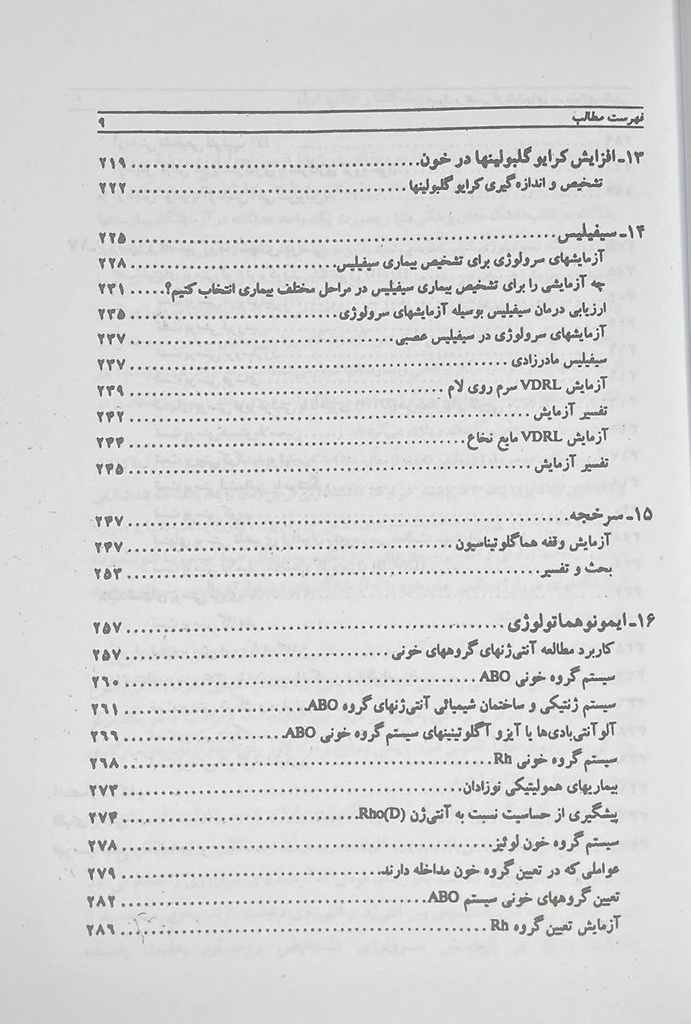 فهرست مطالب ۹
۱۳ـ افزایش کرایو گلبولینها در خون ۲۱۹
تشخیص و اندازه گیری کرایو گلبولینها ۲۲۲
۱۴ـ سیفیلیس ۲۲۵
آزمایشهای سرولوژی برای تشخیص بیماری سیفیلیس ۲۲۸
چه آزمایشی را برای تشخیص بیماری سیفیلیس در مراحل مختلف بیماری انتخاب کنیم؟ ۲۳۱
ارزیابی درمان سیفیلیس بوسیله آزمایشهای سرولوژی ۲۳۵
آزمایشهای سرولوژی در سیفیلیس عصبی ۲۳۷
سیفیلیس مادرزادی ۲۳۷
آزمایش VDRL سرم روی لام ۲۳۹
تفسیر آزمایش ۲۴۲
آزمایش VDRL مایع نخاع ۲۴۴
تفسیر آزمایش ۲۴۵
۱۵ـ سرخجه ۲۴۷
آزمایش وقفه هماگلوتیناسیون ۲۴۷
بحث و تفسیر ۲۵۳
۱۶ـ ایمونوهماتولوژی ۲۵۷
کاربرد مطالعه آنتی‌ژنهای گروههای خونی ۲۵۷
سیستم گروه خونی ABO ۲۶۰
سیستم ژنتیکی و ساختمان شیمیائی آنتی‌ژنهای گروه ABO ۲۶۱
آلوآنتی‌بادی‌ها یا آیزو آگلوتینینهای سیستم گروه خونی ABO ۲۶۶
سیستم گروه خونی Rh ۲۶۸
بیماریهای همولیتیکی نوزادان ۲۷۳
پیشگیری از حساسیت نسبت به آنتی‌ژن Rho(D) ۲۷۴
سیستم گروه خون لوئیز ۲۷۸
عواملی که در تعیین گروه خون مداخله دارند ۲۷۹
تعیین گروههای خونی سیستم ABO ۲۸۲
آزمایش تعیین گروه Rh ۲۸۶